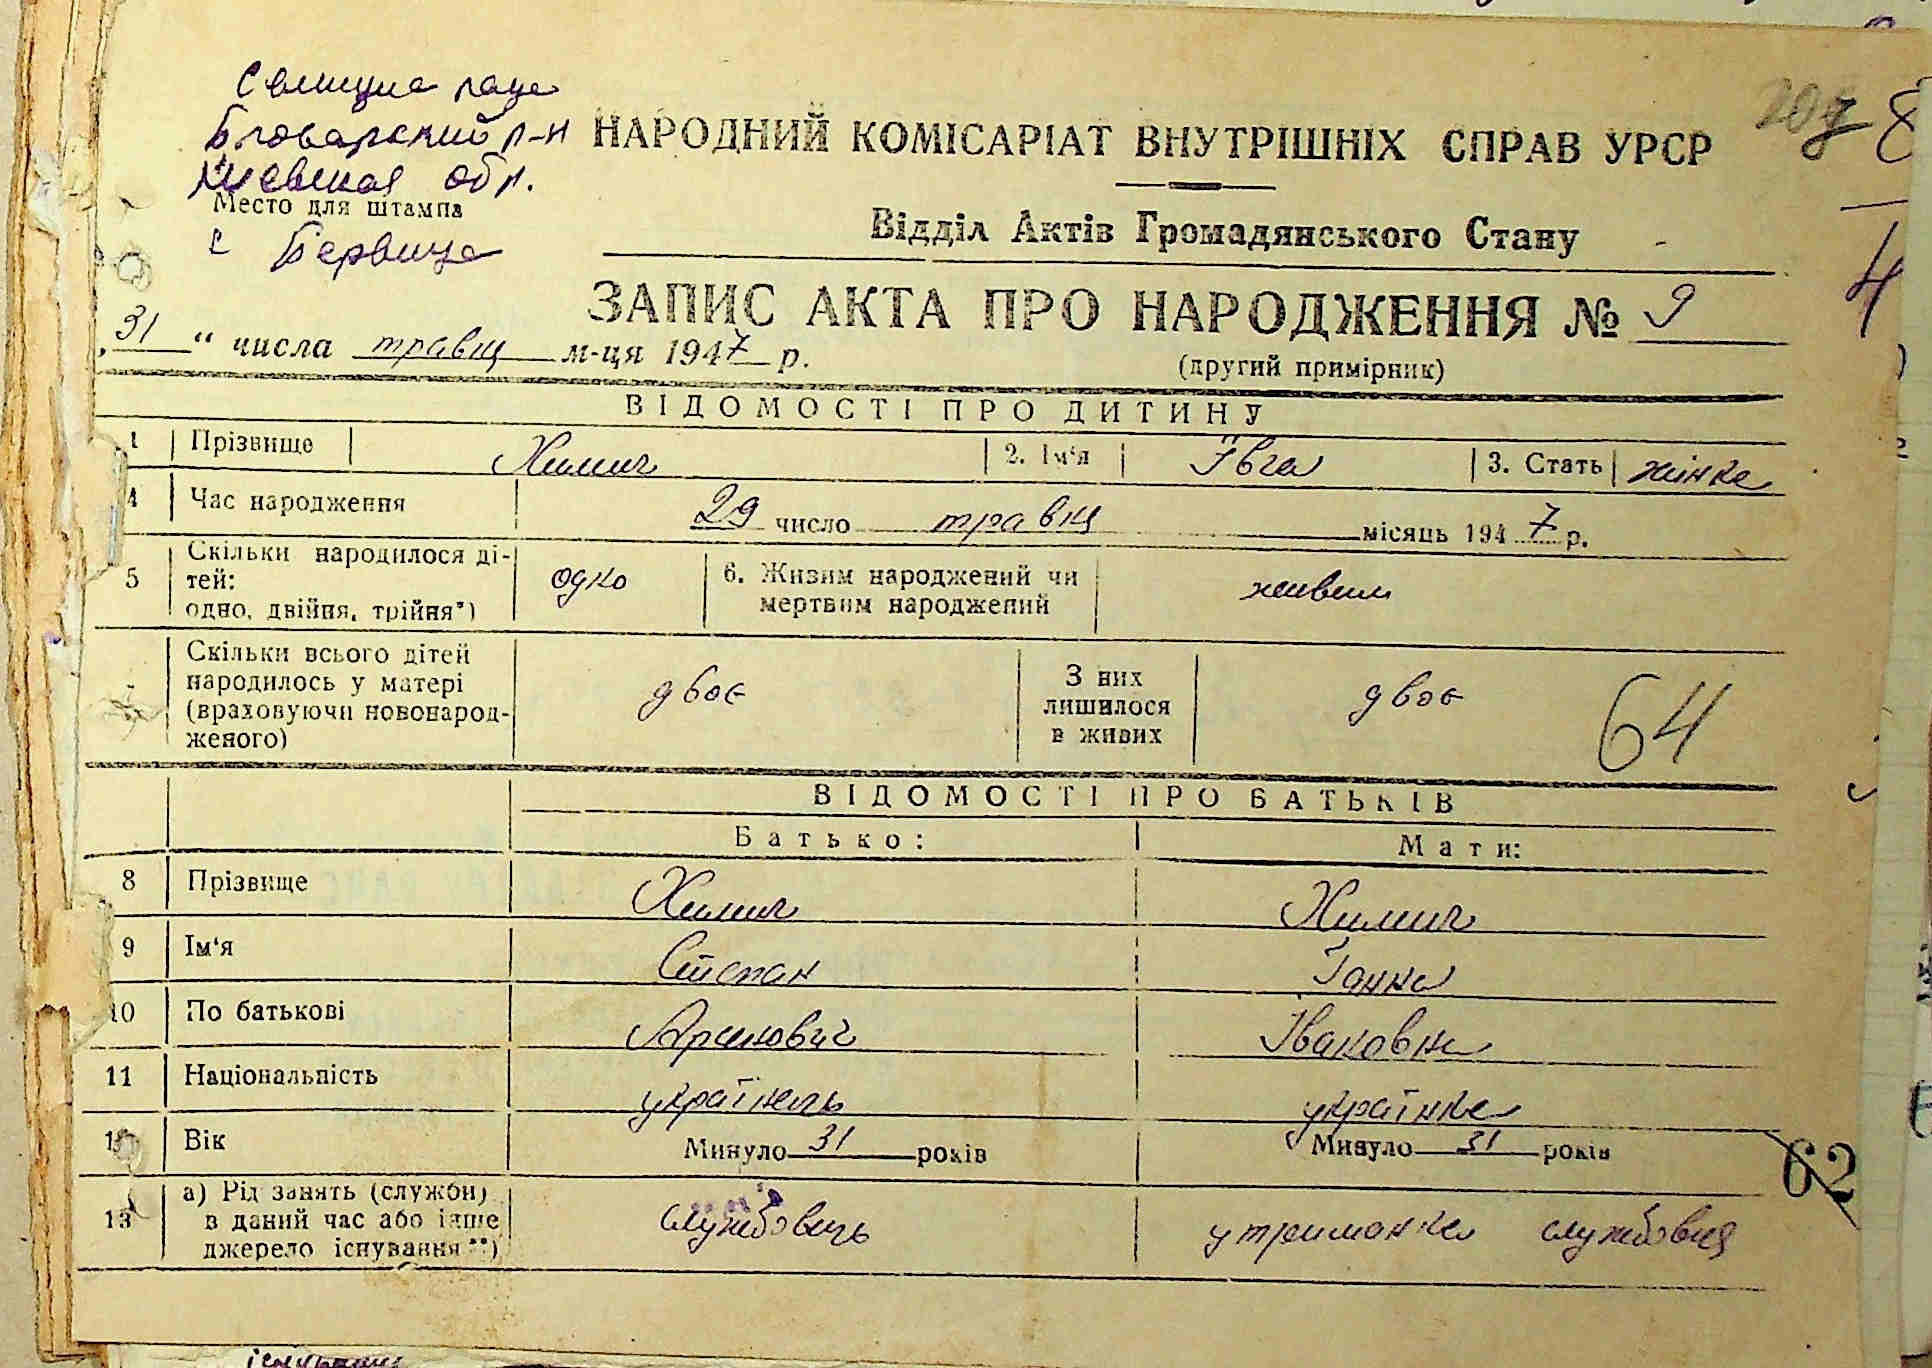 Броварский р-н
Киевская обл.
Место для штампа
с Бервица
НАРОДНИЙ КОМІСАРІАТ ВНУТРІШНІХ СПРАВ УРСР
Відділ Актів Громадянського Стану
ЗАПИС АКТА ПРО НАРОДЖЕННЯ № 9
„31“ числа травня м-ця 1947 р.
(другий примірник)
ВІДОМОСТІ ПРО ДИТИНУ
1 Прізвище Химич 2. Ім‘я Ївга 3. Стать жінка
4 Час народження 29 число травня місяць 1947 р.
5 Скільки народилося ді-
тей:
одно, двійня, трійня*) одно
6. Живим народжений чи
мертвим народжений живим
Скільки всього дітей
народилось у матері
(враховуючи новонарод-
женого) двоє
З них
лишилося
в живих двоє
64
ВІДОМОСТІ ПРО БАТЬКІВ
Батько: Мати:
8 Прізвище Химич Химич
9 Ім‘я Степан Ганна
10 По батькові Арсенович Івановна
11 Національність українець українка
Вік Минуло 31 років Минуло 31 років
62
13 а) Рід занять (служби)
в даний час або інше
джерело існування**) службовець утриманка службовця